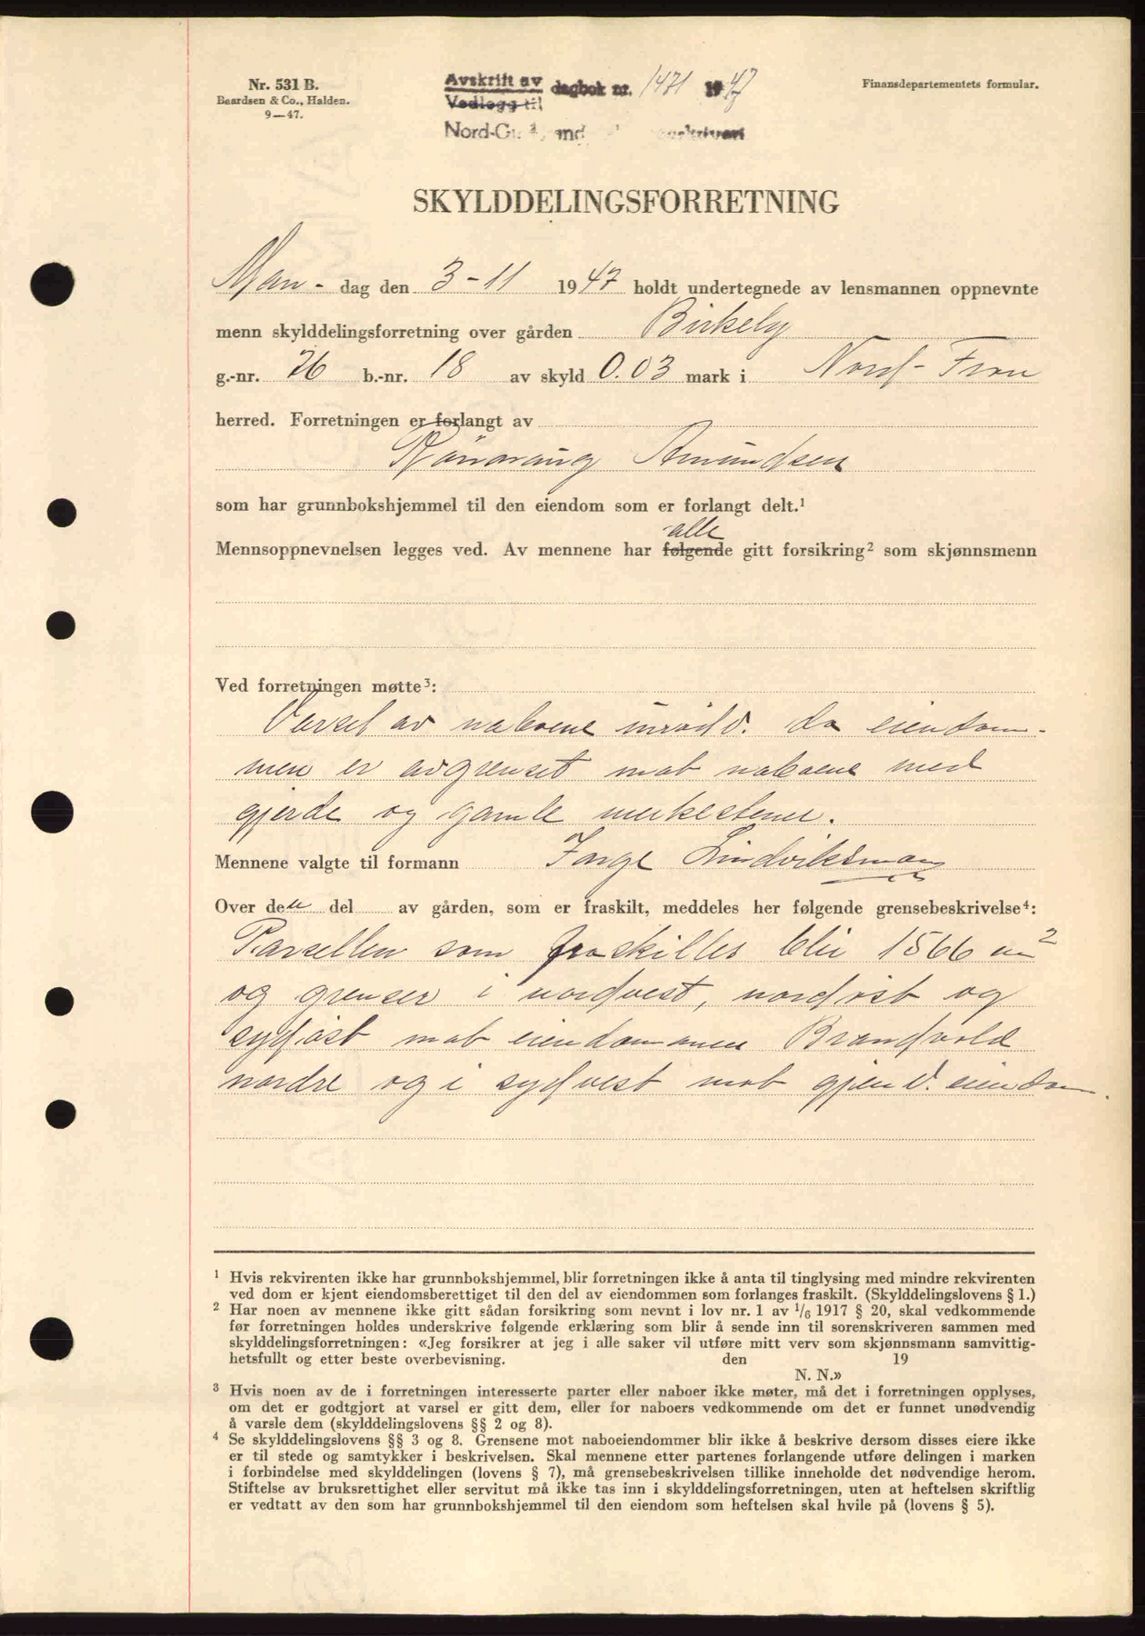 Nr. 531 B.
Baardsen & Co., Halden.
9—47.
Avskrift av
Vedlegg til
dagbok nr. 1471 1947
Nord-Gu
Finansdepartementets formular.
SKYLDDELINGSFORRETNING
Man - dag den 3-11 1947 holdt undertegnede av lensmannen oppnevnte
menn skylddelingsforretning over gården Birkely
g.-nr. 76 b.-nr. 18 av skyld 0.03 mark i Nord-Fron
herred. Forretningen er forlangt av
Amundsen
som har grunnbokshjemmel til den eiendom som er forlangt delt.¹
alle
Mennsoppnevnelsen legges ved. Av mennene har følgende gitt forsikring² som skjønnsmenn
Ved forretningen møtte³:
Varsel av naboene unødv. da eiendom-
men er avgrenset mot naboene med
gjerde og gamle merkestener.
Mennene valgte til formann Lindviksmoen
Over den del av gården, som er fraskilt, meddeles her følgende grensebeskrivelse⁴:
Parsellen som fraskilles blir 1566 m²
og grenser i nordvest, nordøst og
sydøst mot eiendommen Brandvold
nordre og i sydvest mot gjenv. eiendom.
¹ Hvis rekvirenten ikke har grunnbokshjemmel, blir forretningen ikke å anta til tinglysing med mindre rekvirenten
ved dom er kjent eiendomsberettiget til den del av eiendommen som forlanges fraskilt. (Skylddelingslovens § 1.)
² Har noen av mennene ikke gitt sådan forsikring som nevnt i lov nr. 1 av 1/6 1917 § 20, skal vedkommende
før forretningen holdes underskrive følgende erklæring som blir å sende inn til sorenskriveren sammen med
skylddelingsforretningen: «Jeg forsikrer at jeg i alle saker vil utføre mitt verv som skjønnsmann samvittig-
hetsfullt og etter beste overbevisning. den 19
N. N.»
³ Hvis noen av de i forretningen interesserte parter eller naboer ikke møter, må det i forretningen opplyses,
om det er godtgjort at varsel er gitt dem, eller for naboers vedkommende om det er funnet unødvendig
å varsle dem (skylddelingslovens §§ 2 og 8).
⁴ Se skylddelingslovens §§ 3 og 8. Grensene mot naboeiendommer blir ikke å beskrive dersom disses eiere ikke
er til stede og samtykker i beskrivelsen. Skal mennene etter partenes forlangende utføre delingen i marken
i forbindelse med skylddelingen (lovens § 7), må grensebeskrivelsen tillike inneholde det nødvendige herom.
Stiftelse av bruksrettighet eller servitut må ikke tas inn i skylddelingsforretningen, uten at heftelsen skriftlig
er vedtatt av den som har grunnbokshjemmel til den eiendom som heftelsen skal hvile på (lovens § 5).